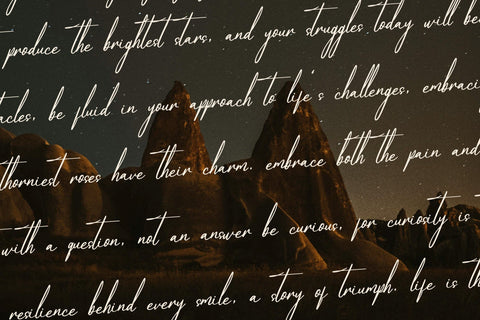 produce the brightest stars, and your struggles today will be
acles, be fluid in your approach to life's challenges, embraci
thorniest roses have their charm. embrace both the pain and
with a question, not an answer be curious, for curiosity is
resilience behind every smile, a story of triumph. life is th